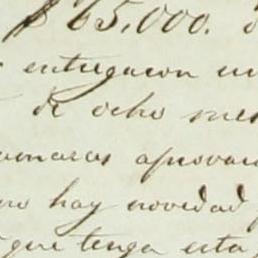 $65,000.
entregacon en
de ocho mes
amaras aprovac
no hay novedad
que tenga esta